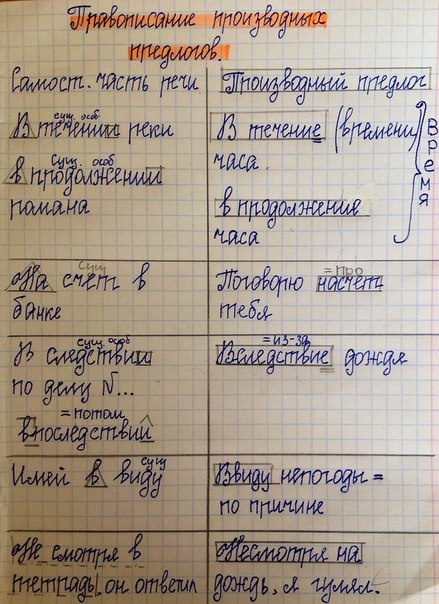 Правописание производных
предлогов.
Самост. часть речи
Производный предлог
сущ. особ.
В течении реки
В течение (времени)
часа.
Время
сущ. особ
в продолжении
романа
в продолжение
часа
сущ
На счет в
банке
=про
Поговорю насчет
тебя
сущ. особ
В следствии
по делу N...
=из-за
Вследствие дождя
=потом
впоследствии
сущ
Имей в виду
Ввиду непогоды =
по причине
Не смотря в
тетрадь, он ответил
Несмотря на
дождь, я гулял.